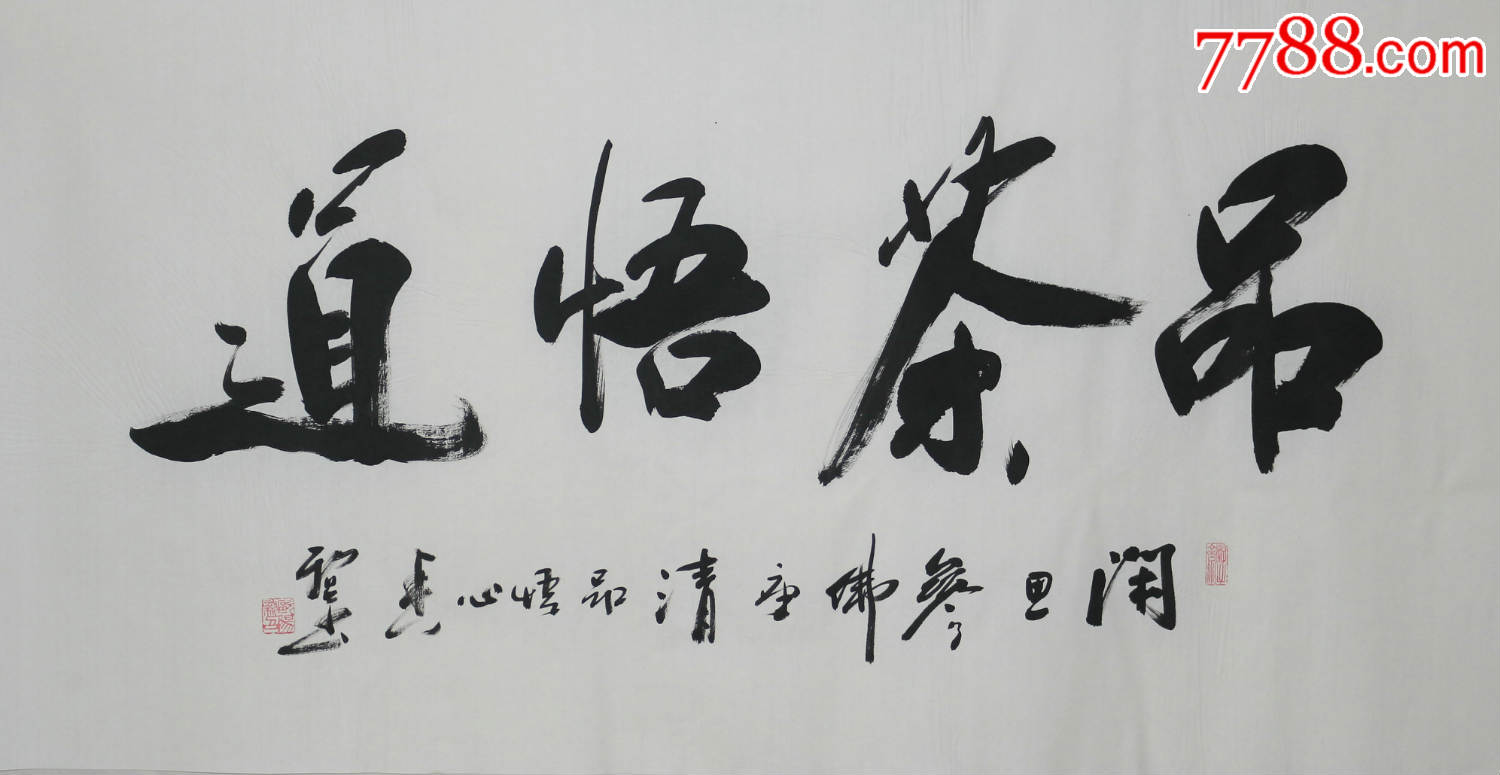 7788.com
品茶悟道
闲思参佛座清品悟心